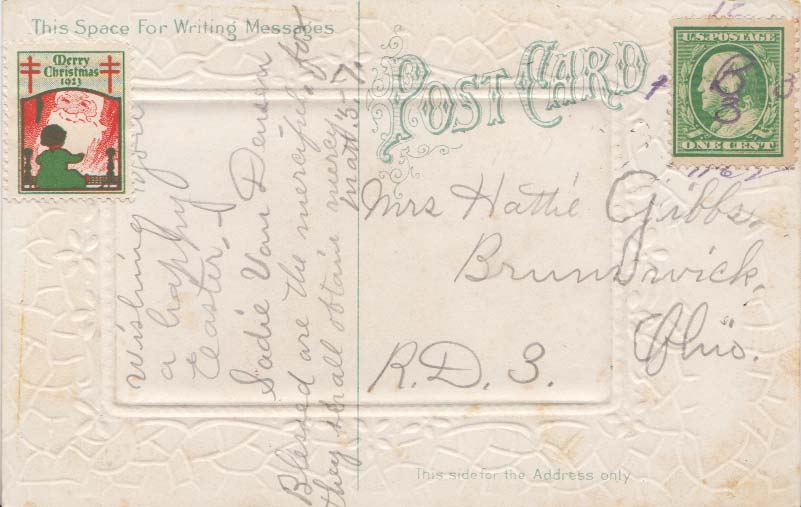 This Space For Writing Messages
Merry
Christmas
1913
POST CARD
U.S. POSTAGE
ONE CENT
Wishing you
a happy
Easter,
Sadie Van Deusen
Blessed are the merciful: for
they shall obtain mercy.
Matt. 5-7.
Mrs Hattie Gibbs,
Brunswick,
Ohio.
R.D. 3.
This side for the Address only